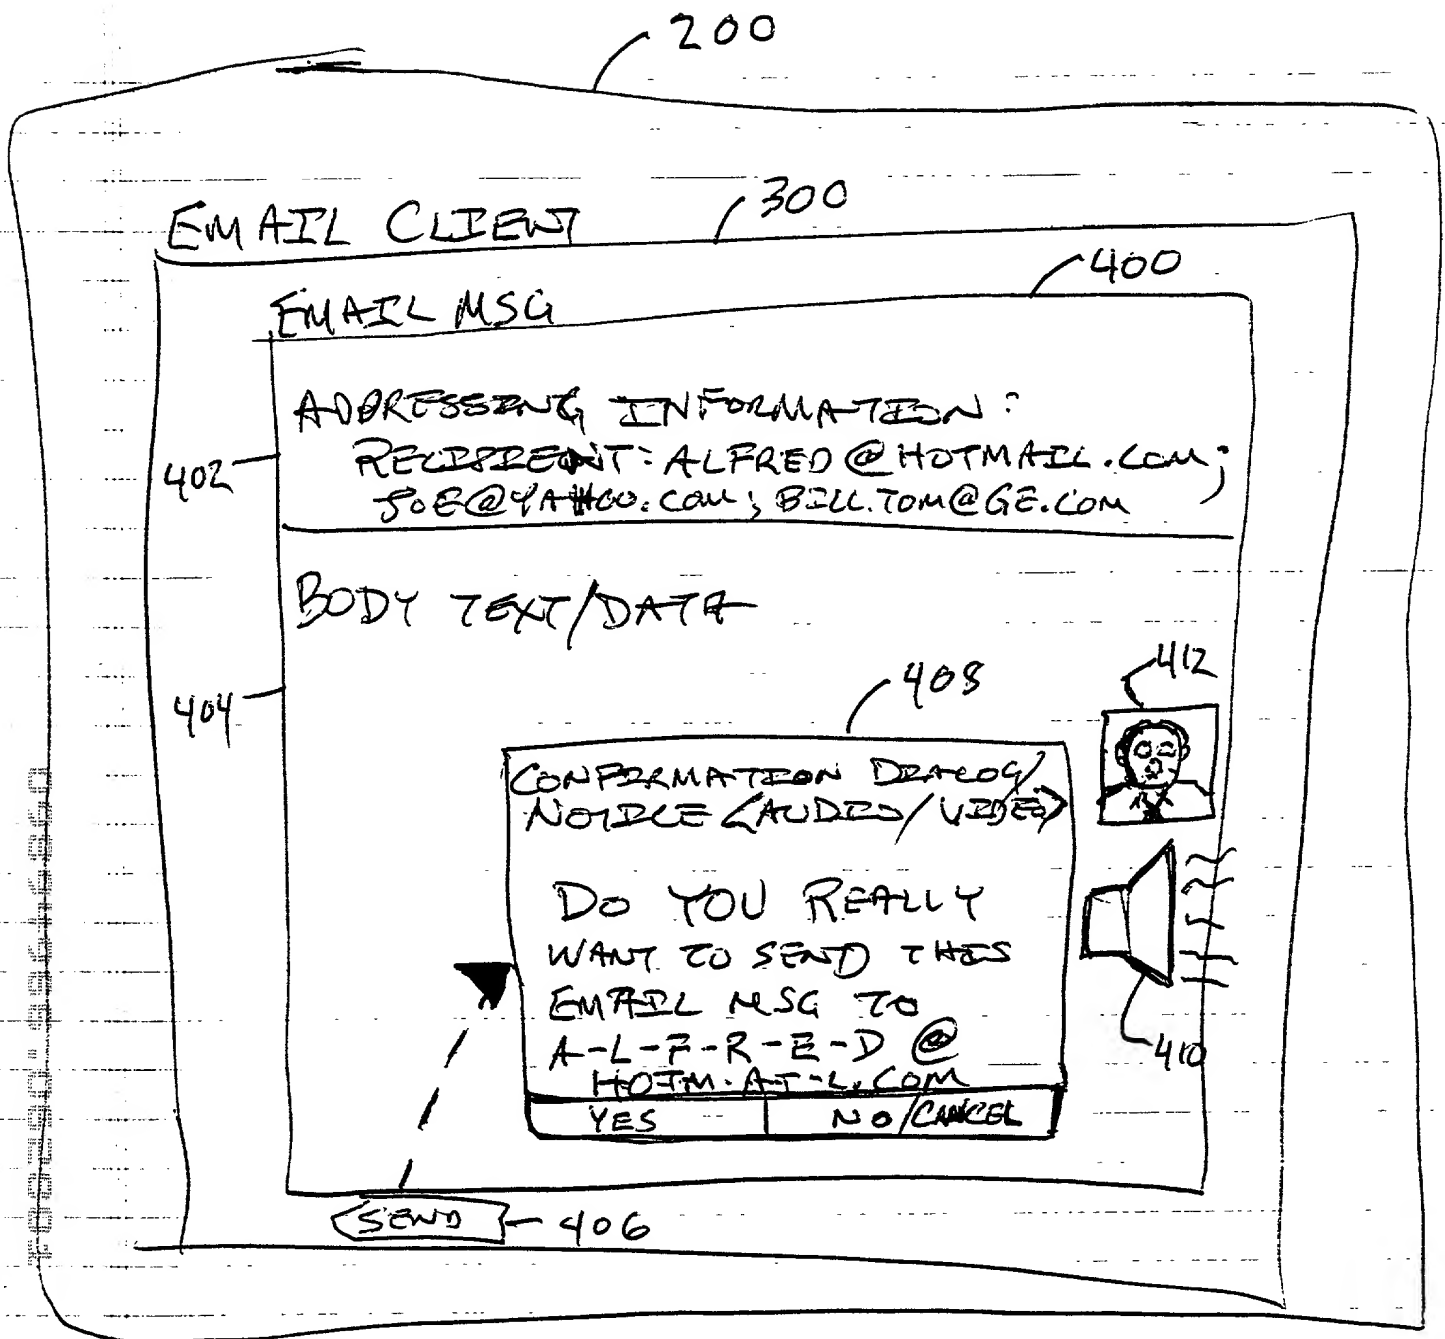 200
EMAIL CLIENT
300
400
EMAIL MSG
ADDRESSING INFORMATION:
RECIPIENT: ALFRED@HOTMAIL.COM;
402
JOE@YAHOO.COM; BILL.TOM@GE.COM
BODY TEXT/DATA
412
408
404
CONFIRMATION DIALOG/
NOTICE (AUDIO/VIDEO)
DO YOU REALLY
WANT TO SEND THIS
EMAIL MSG TO
A-L-F-R-E-D @
410
HOTM-A-I-L.COM
YES NO/CANCEL
SEND 406